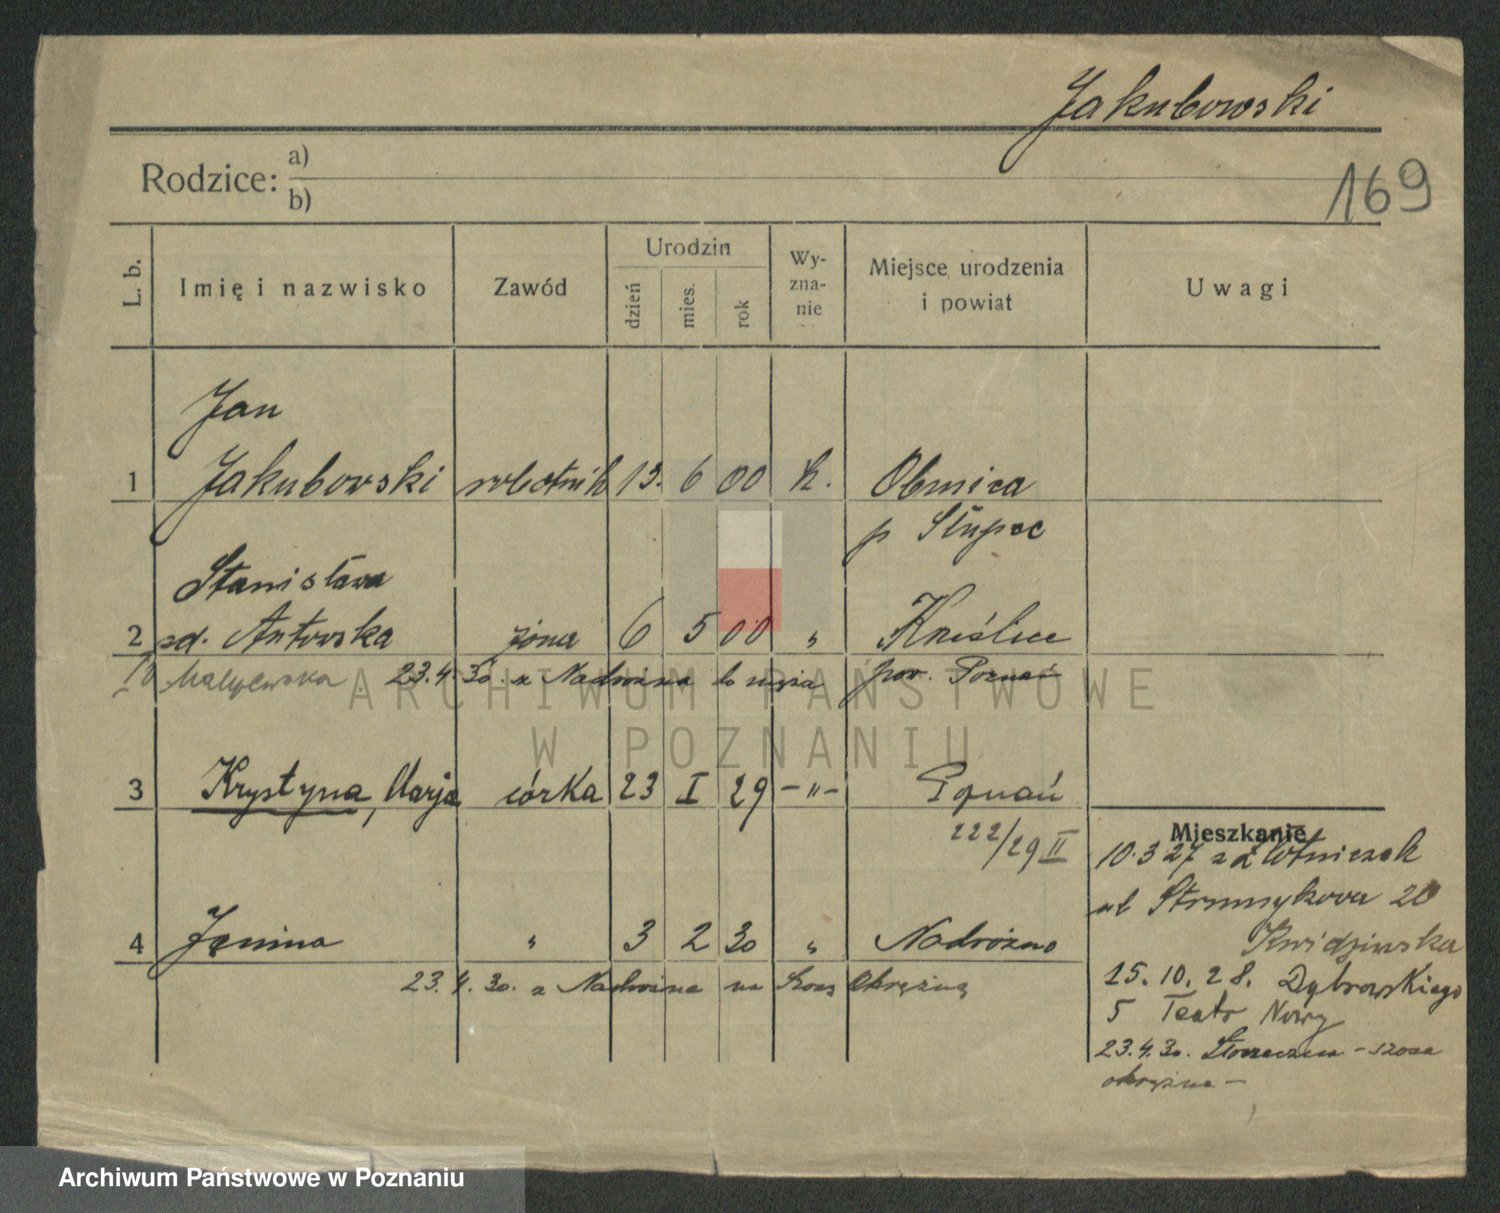 Jakubowski
169
Rodzice: a)
b)
L. b.
Imię i nazwisko
Zawód
Urodzin
dzień
mies.
rok
Wy-
zna-
nie
Miejsce urodzenia
i powiat
Uwagi
Jan
1 Jakubowski robotnik 13. 6 00 k.
p Słupca
Stanisława
2 zd. Antowska żona 6 5 00 "
23.4.30. z Nadrożna do męża pow. Poznań
3 Krystyna, Marja córka 23 I 29 -"- Poznań
222/29 II
4 Janina " 3 2 30 " Nadrożno
23.4.30. z Nadrożna na Szosę Okrężną
Mieszkanie
10.3 27 z
ul 20
15.10.28. Dąbrowskiego
5 Teatr Nowy
23.4.30. - szosa
okrężna -
ARCHIWUM PAŃSTWOWE
W POZNANIU
Archiwum Państwowe w Poznaniu